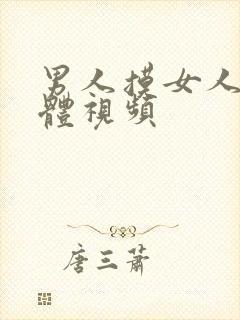 男人摸女人
體視頻
唐三蕭